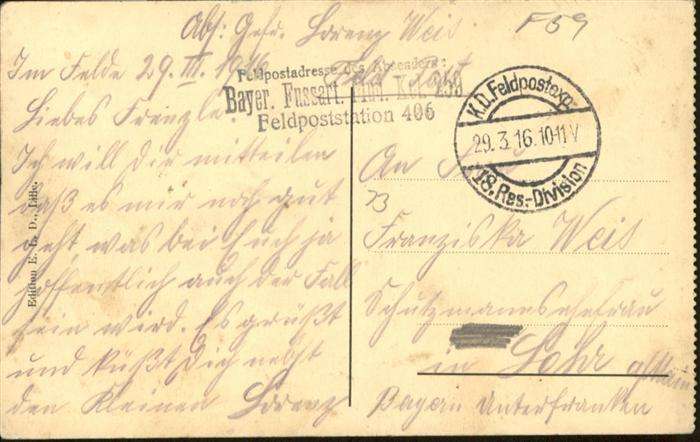 Abs: Gefr. Lorenz Weis
F59
Im Felde 29. III. 1916 Feld Post
Feldpostadresse des Absenders:
Bayer. Fussart. Mun. Kol. 258
Feldpoststation 406
K.D. Feldpostexp.
29.3.16.10-11V
18. Res.-Division
Liebes Frenzle.
Ich will Dir mitteilen
daß es mir noch gut
geht, was bei Euch ja
hoffentlich auch der Fall
sein wird. Es grüßt
und küßt Dich nebst
den Kleinen Lorenz
Edition E. L. D., Lille.
An
73
Franziska Weis
Schutzmannsehefrau
in Lohr a/Main
Bayern Unterfranken